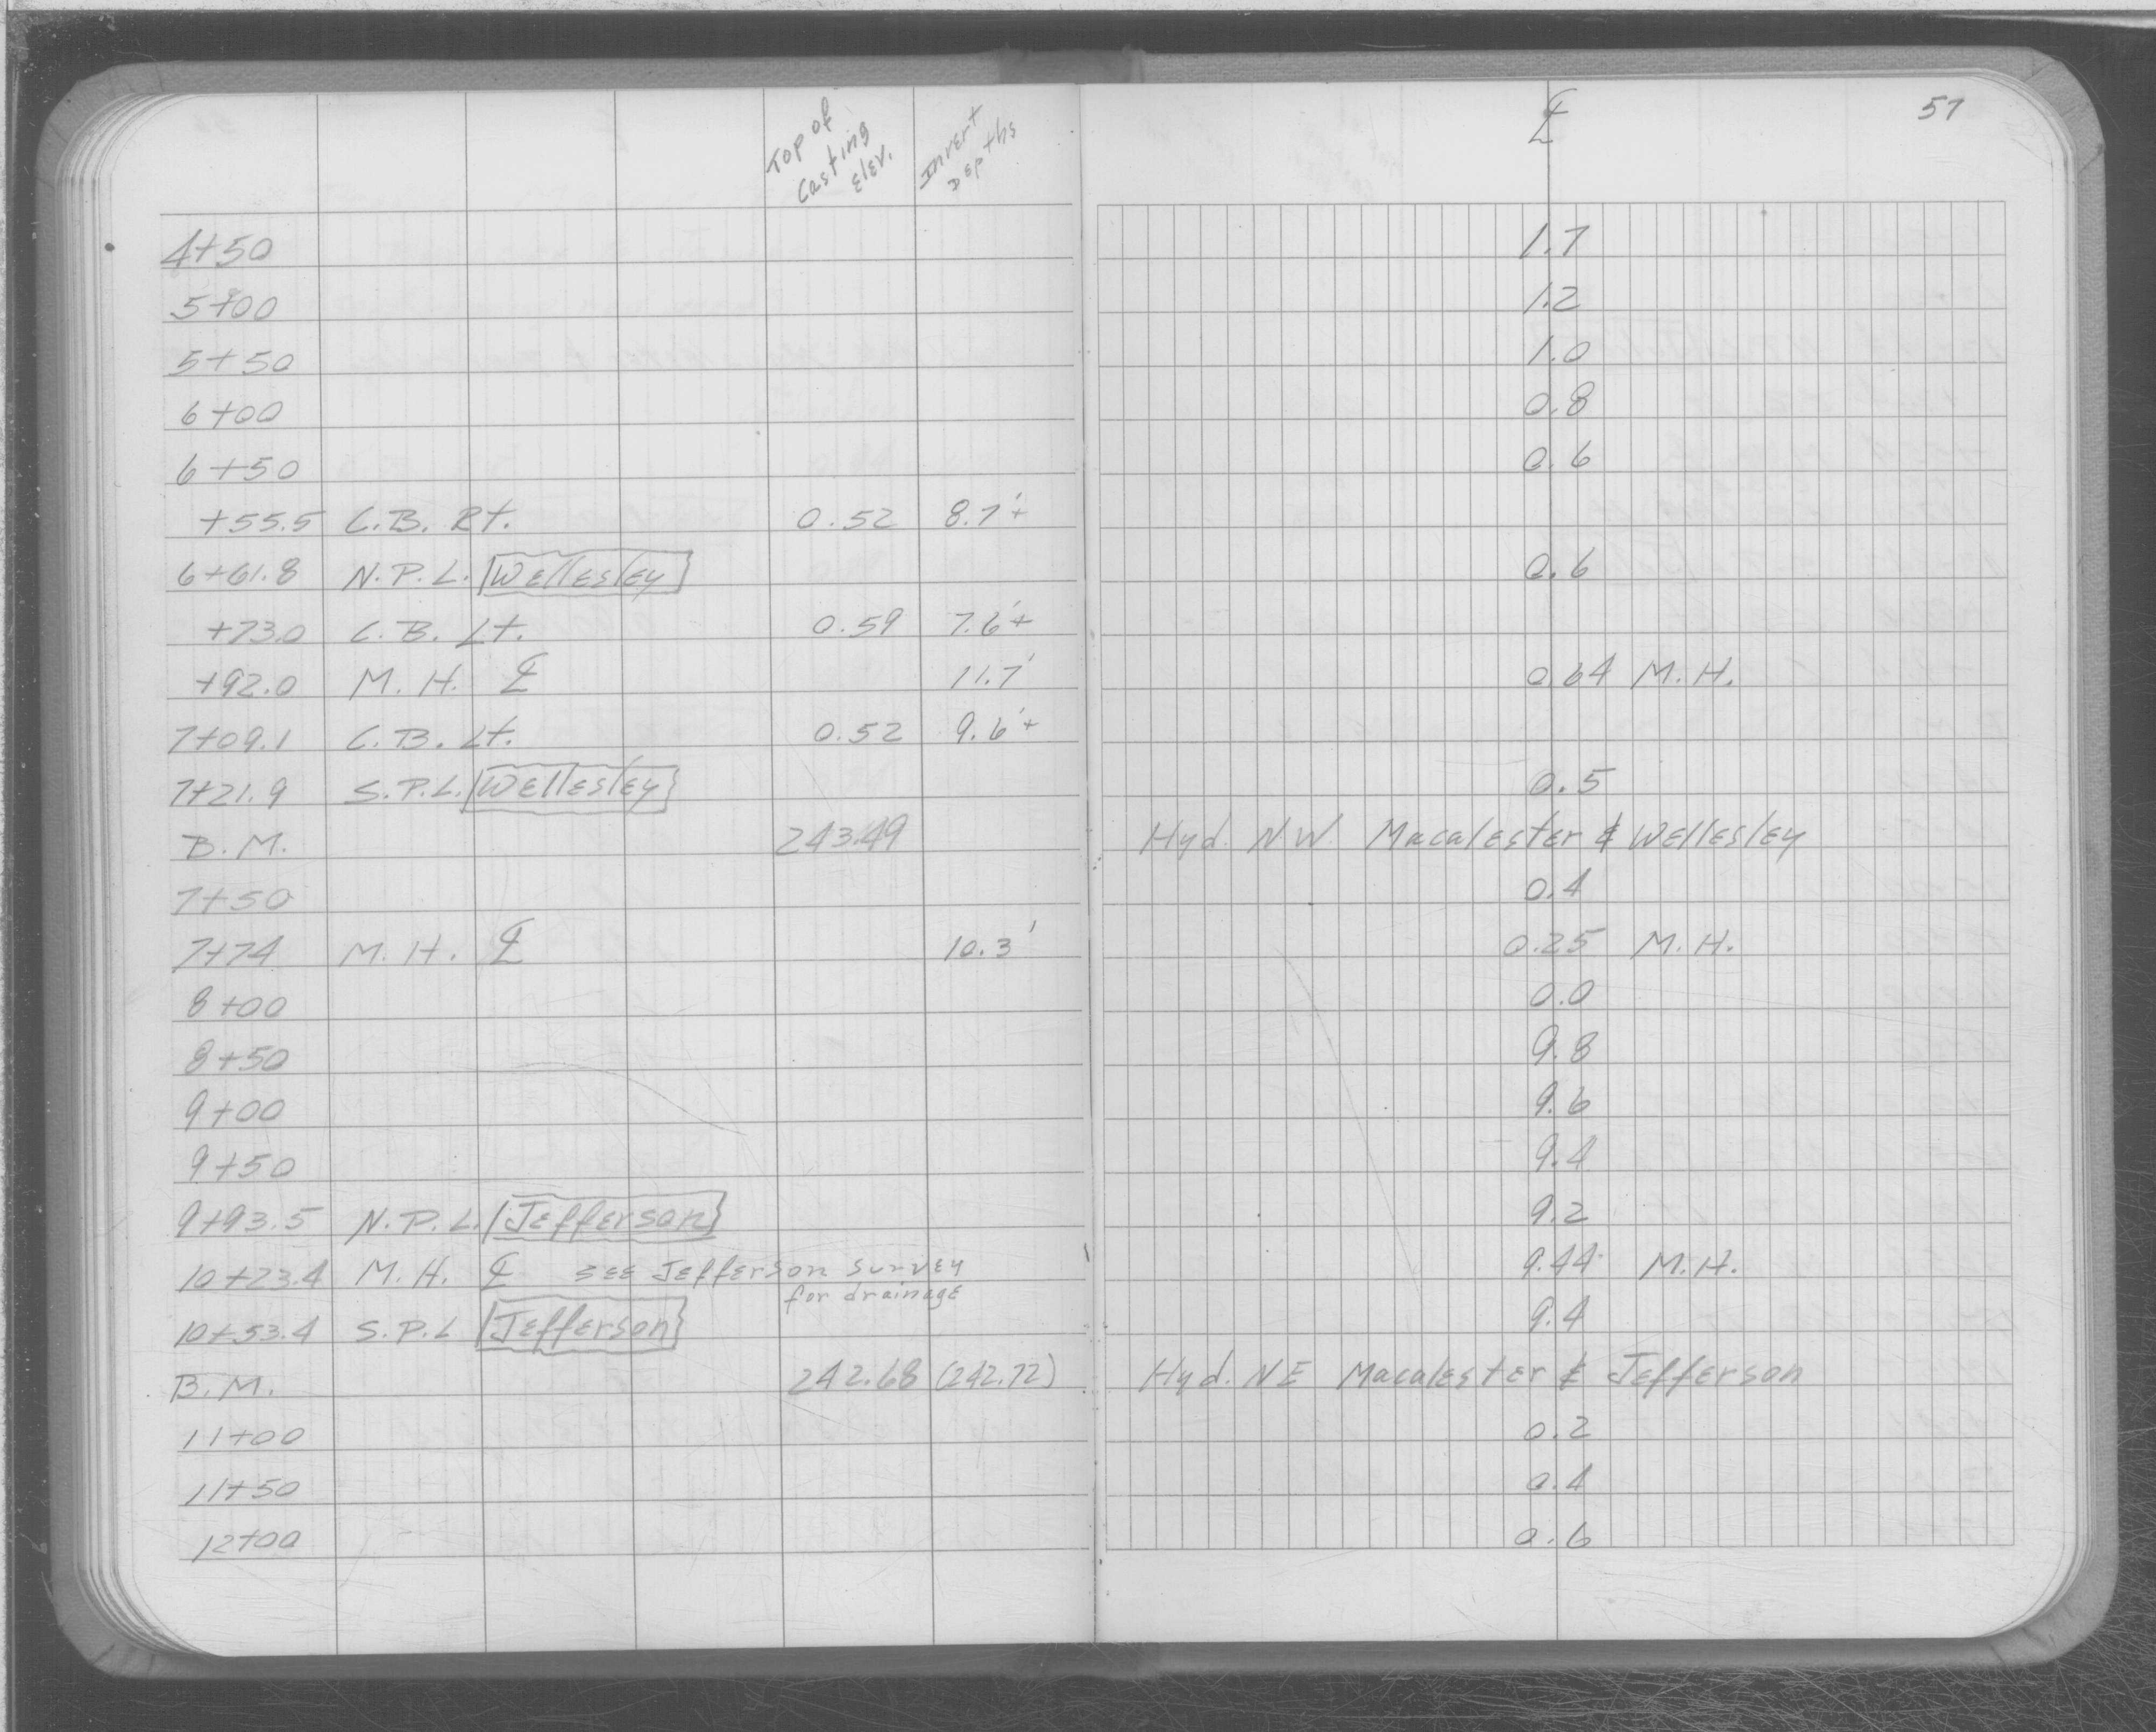 Top of Casting Elev. Invert Depths ℄ 57
4+50 1.7
5+00 1.2
5+50 1.0
6+00 0.8
6+50 0.6
+55.5 C.B. Rt. 0.52 8.7'+
6+61.8 N.P.L. Wellesley 0.6
+73.0 C.B. Lt. 0.59 7.6'+
+92.0 M.H. ℄ 11.7' 0.64 M.H.
7+09.1 C.B. Lt. 0.52 9.6'+
7+21.9 S.P.L. Wellesley 0.5
B.M. 243.49 Hyd. N.W. Macalester & Wellesley
7+50 0.4
7+74 M.H. ℄ 10.3' 0.25 M.H.
8+00 0.0
8+50 9.8
9+00 9.6
9+50 9.4
9+93.5 N.P.L. Jefferson 9.2
10+23.4 M.H. ℄ see Jefferson survey 9.44 M.H.
for drainage
10+53.4 S.P.L Jefferson 9.4
B.M. 242.68 (242.72) Hyd. NE Macalester & Jefferson
11+00 0.2
11+50 0.4
12+00 0.6